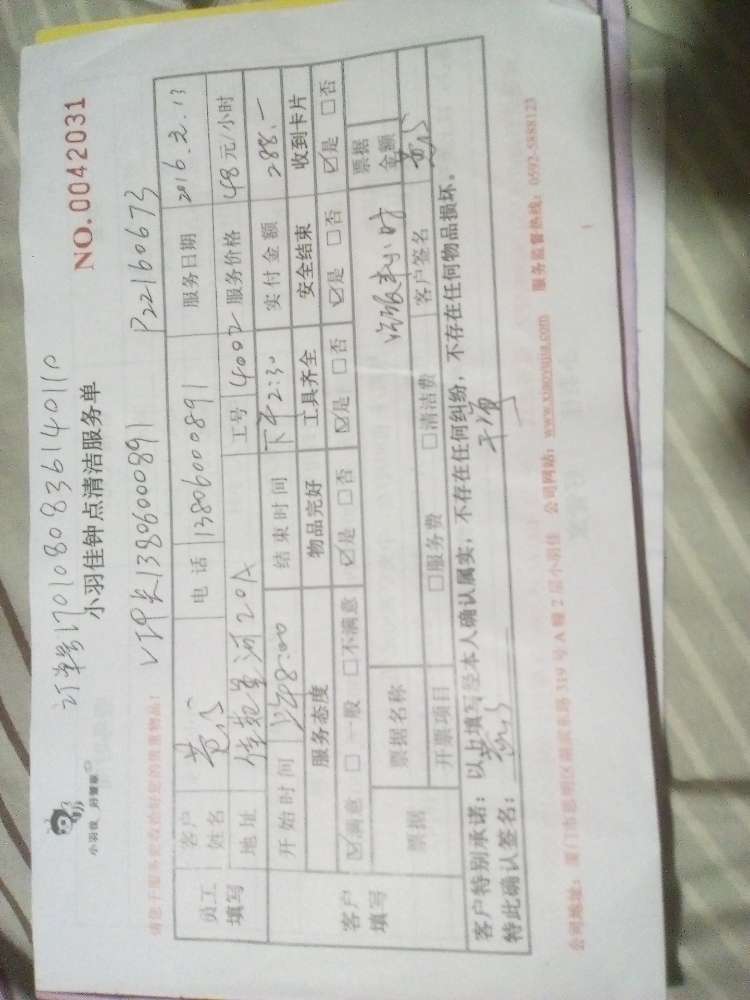 订单号1701080836140110
小羽佳 好管家
小羽佳钟点清洁服务单
NO.0042031
VIP卡13806000891
P22160673
请您于服务前收拾好您的贵重物品!
员工填写
客户姓名
电话 13806000891
服务日期 2016.元.13
地址
工号 4002
服务价格 48元/小时
开始时间 上午8:00
结束时间 下午2:30
实付金额 288.-
客户填写
服务态度 物品完好 工具齐全 安全结束 收到卡片
☑满意 □一般 □不满意 ☑是 □否 ☑是 □否 ☑是 □否 ☑是 □否
票据
票据名称
票据金额
开票项目 □服务费 □清洁费
客户签名
客户特别承诺:以上填写经本人确认属实,不存在任何纠纷,不存在任何物品损坏。
特此确认签名:
公司网站:www.xiaoyujia.com 服务监督热线:0592-5888123